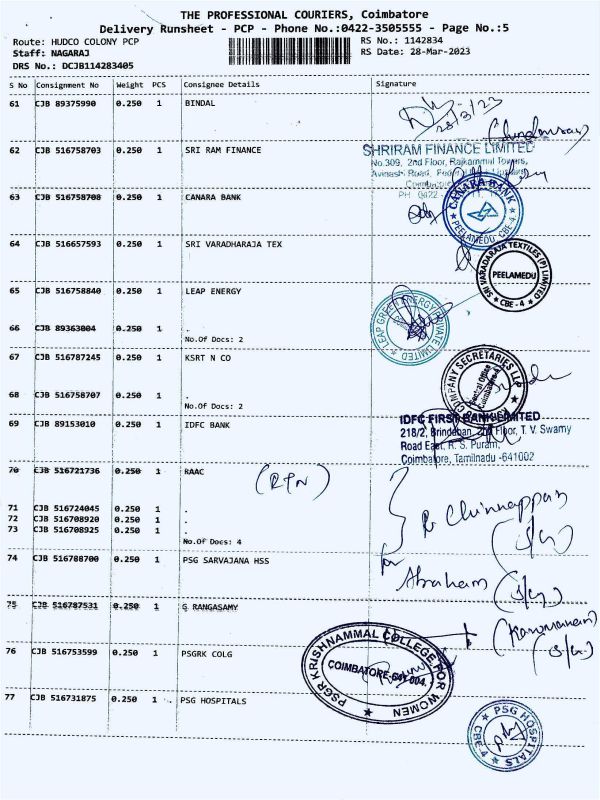 THE PROFESSIONAL COURIERS, Coimbatore
Delivery Runsheet - PCP - Phone No.:0422-3505555 - Page No.:5
Route: HUDCO COLONY PCP
RS No.: 1142834
Staff: NAGARAJ
RS Date: 28-Mar-2023
DRS No.: DCJB114283405
S No Consignment No Weight PCS Consignee Details Signature
61 CJB 89375990 0.250 1 BINDAL
28/3/23
62 CJB 516758703 0.250 1 SRI RAM FINANCE
SHRIRAM FINANCE LIMITED
No.309, 2nd Floor, Rajkammul Towers,
63 CJB 516758708 0.250 1 CANARA BANK
CANARA BANK
PEELAMEDU CBE-4
64 CJB 516657593 0.250 1 SRI VARADHARAJA TEX
SRI VARADARAJA TEXTILES (P) LIMITED
PEELAMEDU
CBE - 4
65 CJB 516758840 0.250 1 LEAP ENERGY
LEAP GREEN ENERGY PRIVATE LIMITED
66 CJB 89363004 0.250 1 .
No.Of Docs: 2
67 CJB 516787245 0.250 1 KSRT N CO
COMPANY SECRETARIES LLP
68 CJB 516758707 0.250 1 .
No.Of Docs: 2
69 CJB 89153010 0.250 1 IDFC BANK
IDFC FIRST BANK LIMITED
218/2, Brindaban, 2nd Floor, T. V. Swamy
Road East, R. S. Puram,
Coimbatore, Tamilnadu -641002
70 CJB 516721736 0.250 1 RAAC
71 CJB 516724045 0.250 1 .
72 CJB 516708920 0.250 1 .
73 CJB 516708925 0.250 1 .
No.Of Docs: 4
Chinnappan
(S/G)
74 CJB 516788700 0.250 1 PSG SARVAJANA HSS
Abraham (S/G)
75 CJB 516787531 0.250 1 G RANGASAMY
(S/G)
76 CJB 516753599 0.250 1 PSGRK COLG
PSGR KRISHNAMMAL COLLEGE FOR WOMEN
COIMBATORE-641 004.
77 CJB 516731875 0.250 1 PSG HOSPITALS
PSG HOSPITALS
CBE-4